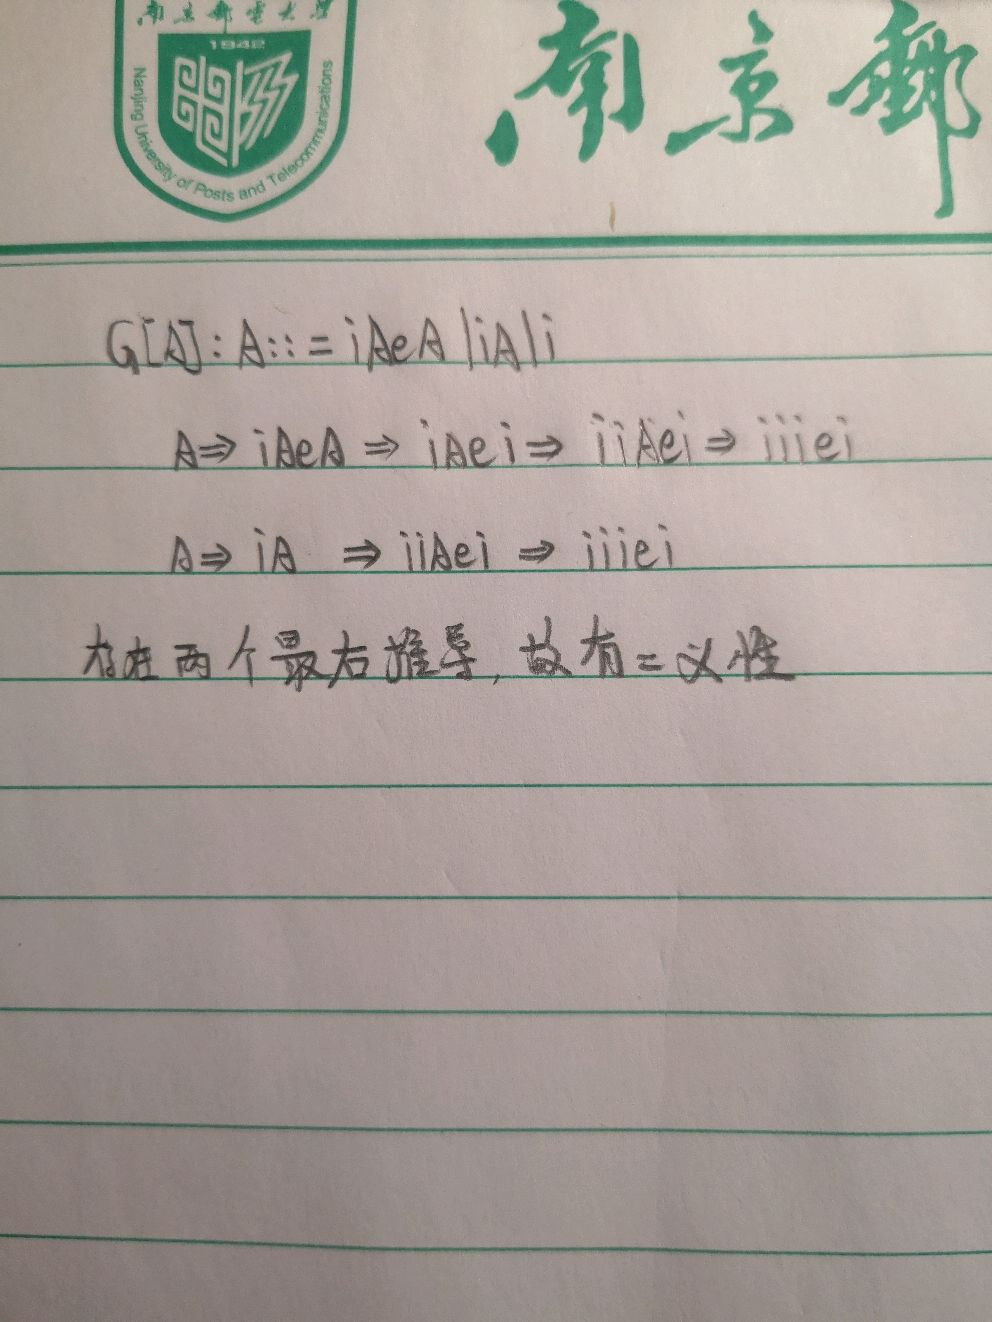 南京邮电大学
1942
Nanjing University of Posts and Telecommunications
南京郵
G[A]:A::=iAeA|iA|i
A⇒iAeA⇒iAei⇒iiAei⇒iiiei
A⇒iA⇒iiAei⇒iiiei
存在两个最右推导,故有二义性